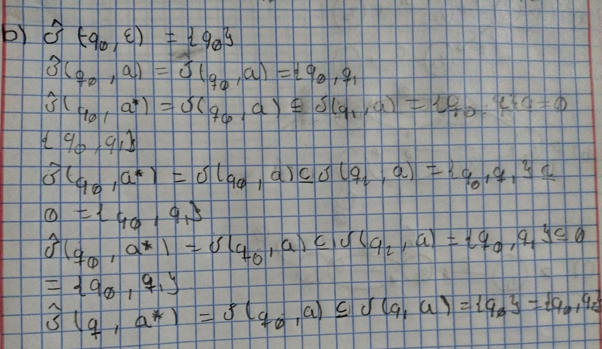 b) δ̂ (q₀, ε) = {q₀}
δ̂(q₀, a) = δ(q₀, a) = {q₀, q₁
δ̂(q₀, a*) = δ(q₀, a) ⊆ δ(q₁, a) = {q₀, = ∅
{q₀, q₁}
δ̂(q₀, a*) = δ(q₀, a) ⊆ δ(q₂, a) = {q₀, q₁} ⊆
∅ = {q₀, q₁}
δ̂(q₀, a*) = δ(q₀, a) ⊆ δ(q₂, a) = {q₀, q₁} ⊆ ∅
= {q₀, q₁}
δ̂(q, a*) = δ(q₀, a) ⊆ δ(q, a) = {q₀} = {q₀, q₂}